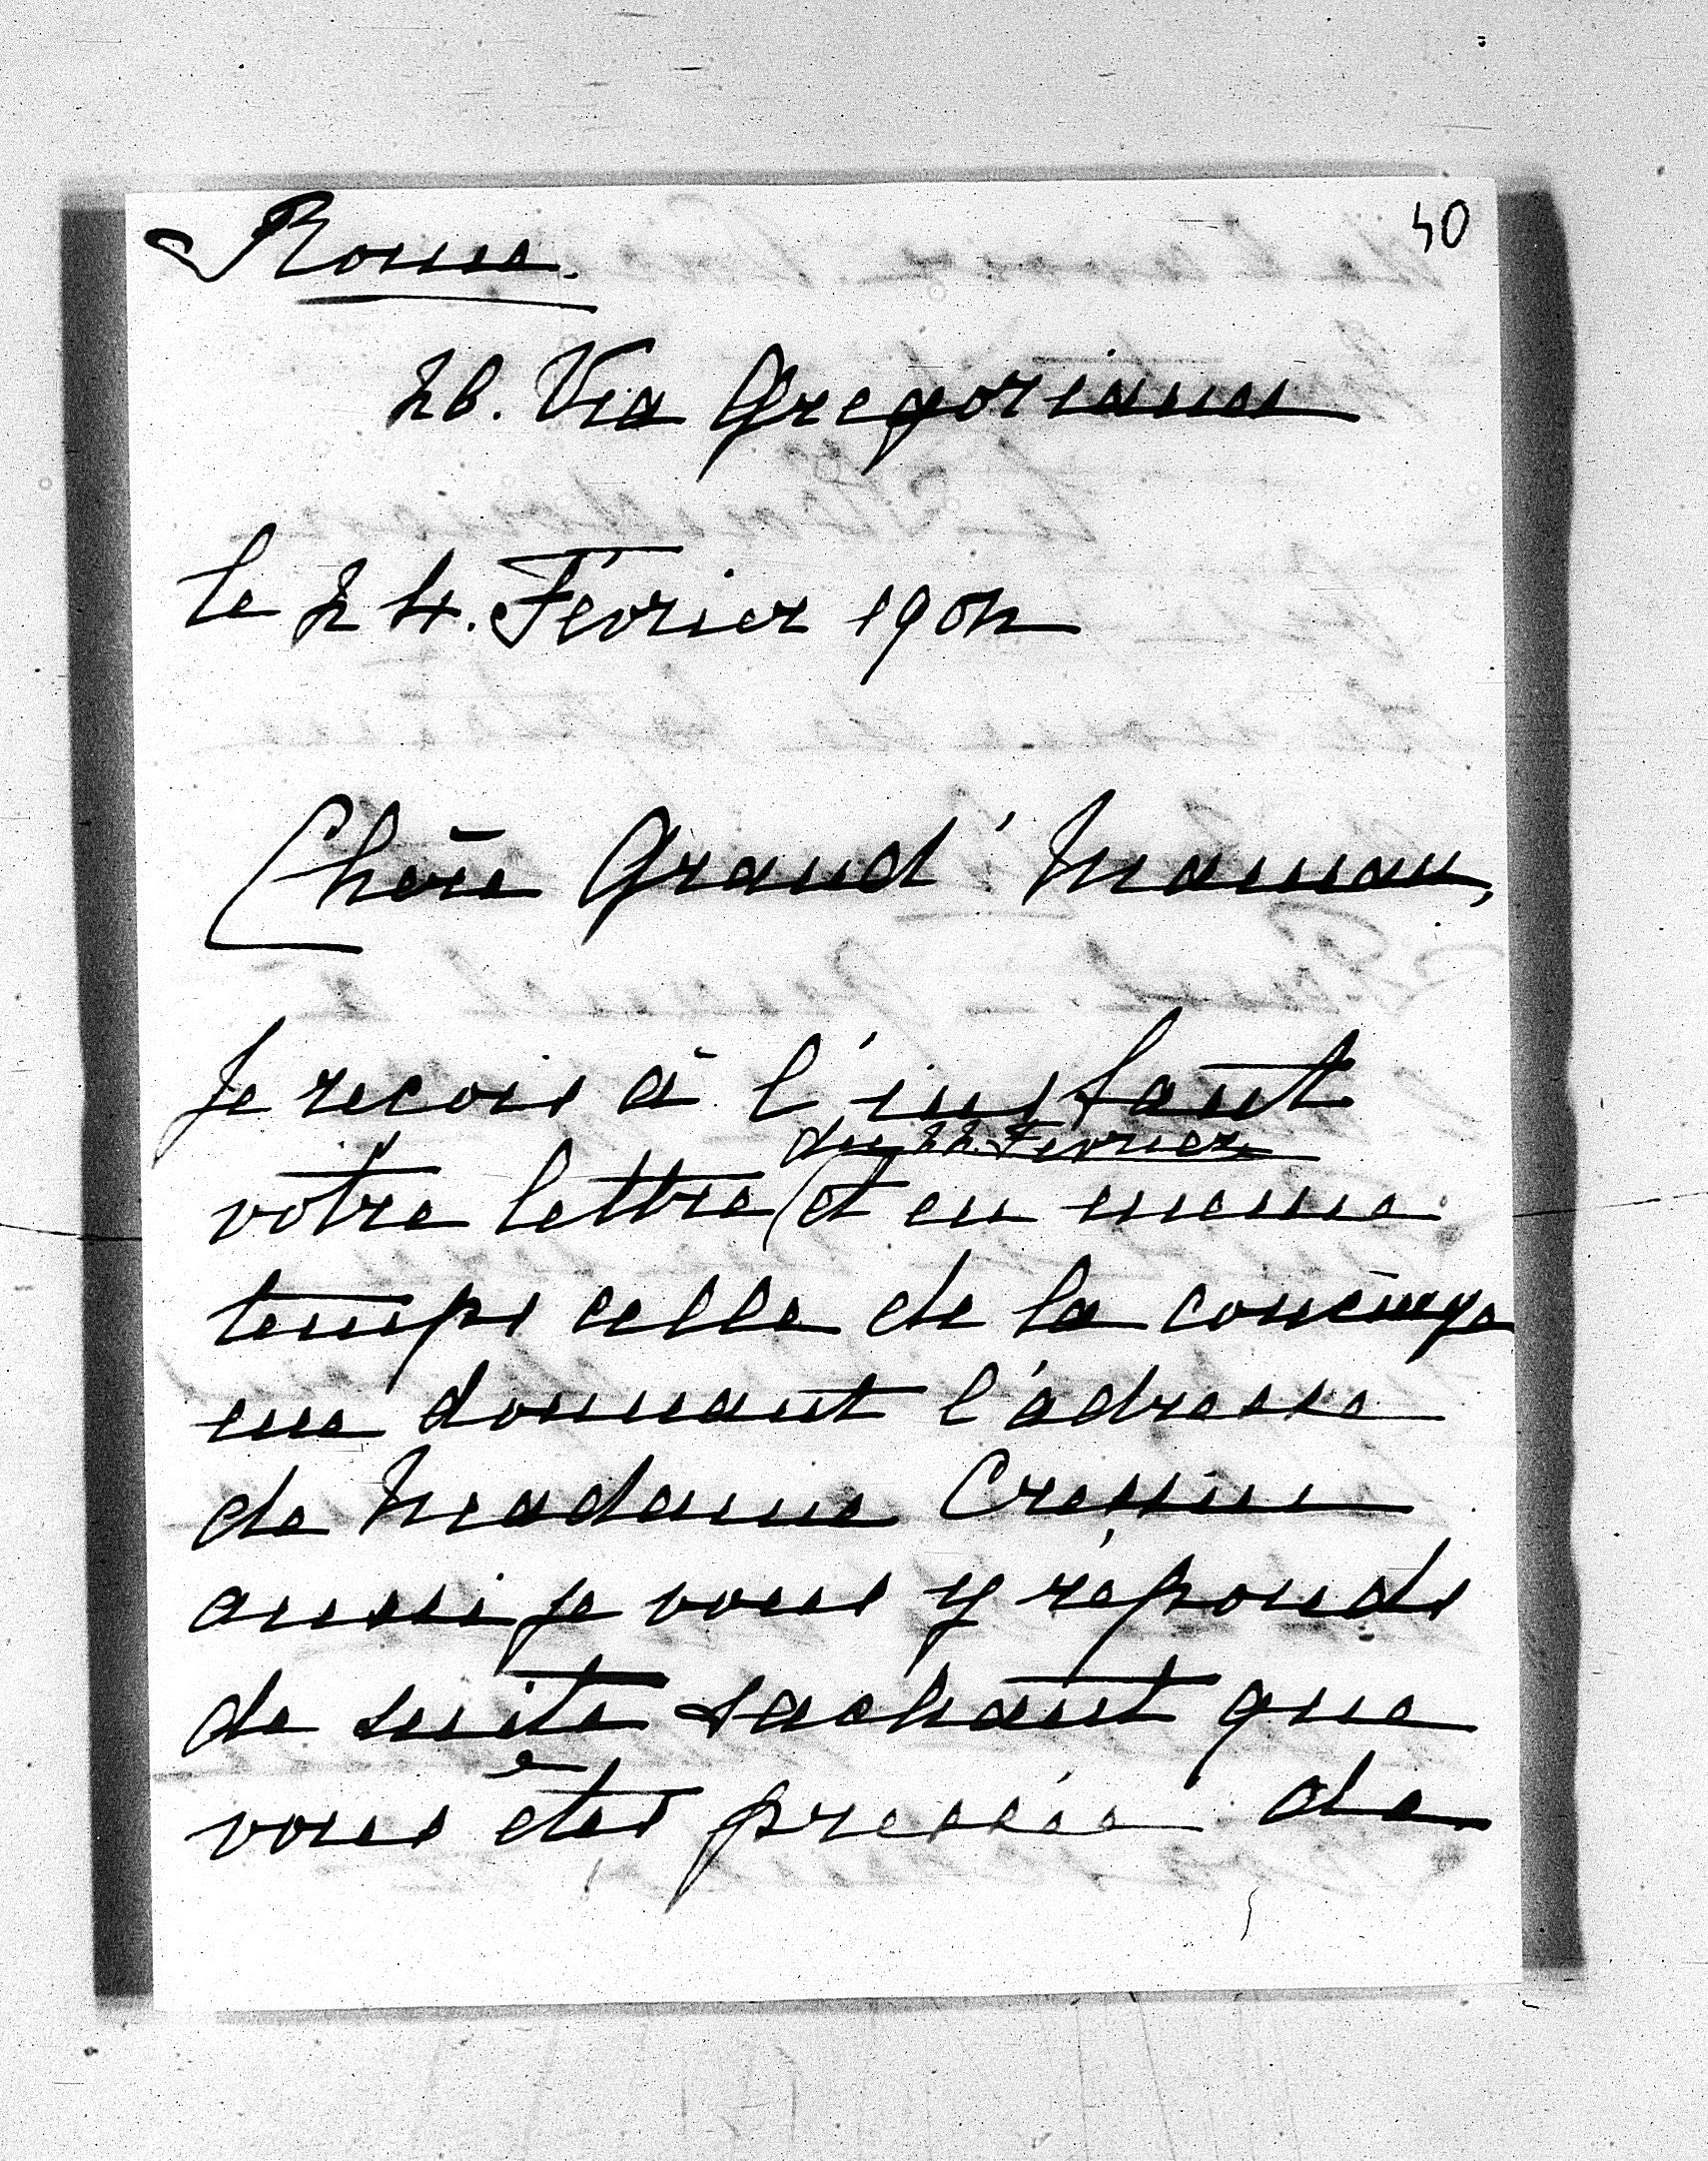 40
Rome.
26. Via Gregoriana
le 24. Février 1902
Chère Grand' Maman,
Je recois à l'instant
du 22. Fevrier
votre lettre (et en meme
temps celle de la concierge
me donnant l'adresse
de Madame Cressin
aussi je vous y réponds
de suite sachant que
vous êtes pressée de